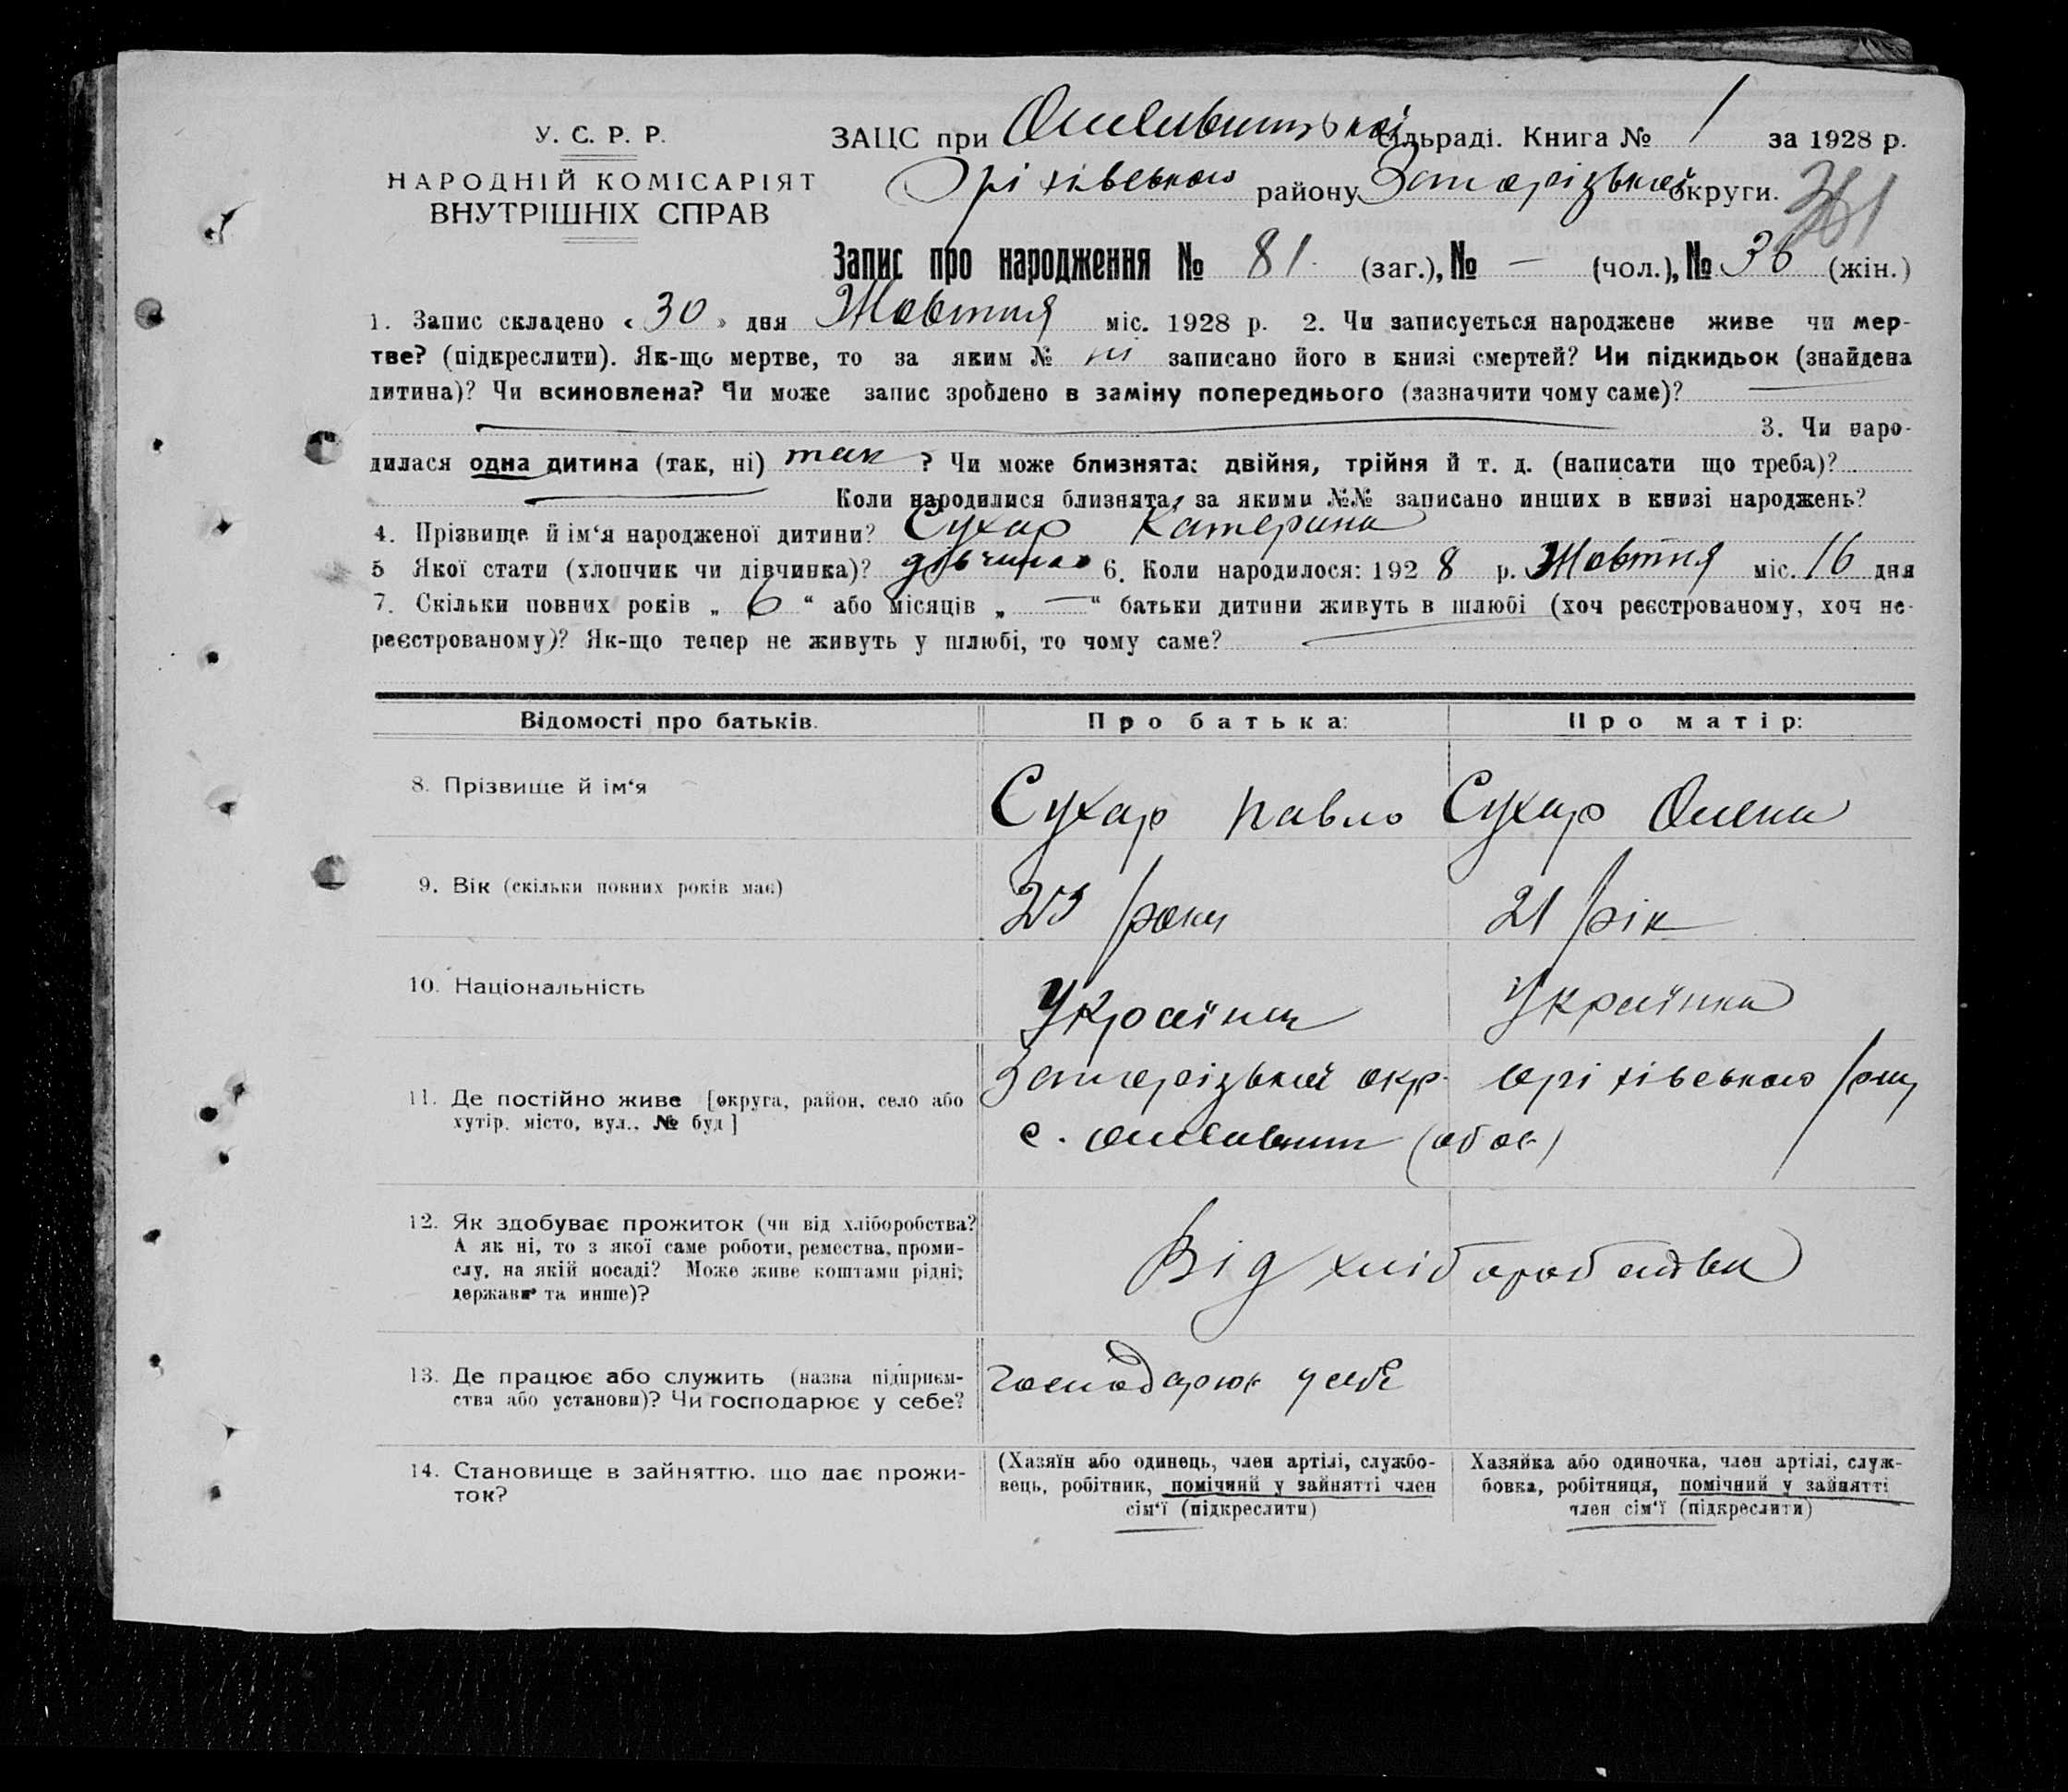 У. С. Р. Р.
НАРОДНІЙ КОМІСАРІЯТ
ВНУТРІШНІХ СПРАВ
ЗАЦС при Омельницької сільраді. Книга № 1 за 1928 р.
Оріхівського району Запорізької округи.
Запис про народження № 81 (заг.), № — (чол.), № 36 (жін.)
1. Запис складено « 30 » дня Жовтня міс. 1928 р. 2. Чи записується народжене живе чи мер-
тве? (підкреслити). Як-що мертве, то за яким № ні записано його в книзі смертей? Чи підкидьок (знайдена
дитина)? Чи всиновлена? Чи може запис зроблено в заміну попереднього (зазначити чому саме)? —
3. Чи наро-
дилася одна дитина (так, ні) так ? Чи може близнята: двійня, трійня й т. д. (написати що треба)?
Коли народилися близнята, за якими №№ записано инших в книзі народжень?
4. Прізвище й ім‘я народженої дитини? Сухар Катерина
5 Якої стати (хлопчик чи дівчинка)? дівчинка 6. Коли народилося: 192 8 р. Жовтня міс. 16 дня
7. Скільки повних років „ 6 “ або місяців „ — “ батьки дитини живуть в шлюбі (хоч реєстрованому, хоч не-
реєстрованому)? Як-що тепер не живуть у шлюбі, то чому саме?
Відомості про батьків. Про батька: Про матір:
8. Прізвище й ім‘я Сухар Павло Сухар Олена
9. Вік (скільки повних років має) 23 роки 21 рік
10. Національність Українец Українка
11. Де постійно живе [округа, район, село або
хутір, місто, вул., № буд]
Запорізької окр. Оріхівського р-ну
с. Омельник (обоє)
12. Як здобуває прожиток (чи від хліборобства?
А як ні, то з якої саме роботи, ремества, проми-
слу, на якій посаді? Може живе коштами рідні;
держави та инше)?
Від хліборобства
13. Де працює або служить (назва підприєм-
ства або установи)? Чи господарює у себе?
господарює у себе
14. Становище в зайняттю, що дає прожи-
ток?
(Хазяїн або одинець, член артілі, службо-
вець, робітник, помічний у зайнятті член
сім‘ї (підкреслити)
Хазяйка або одиночка, член артілі, служ-
бовка, робітниця, помічний у зайнятті
член сім‘ї (підкреслити)